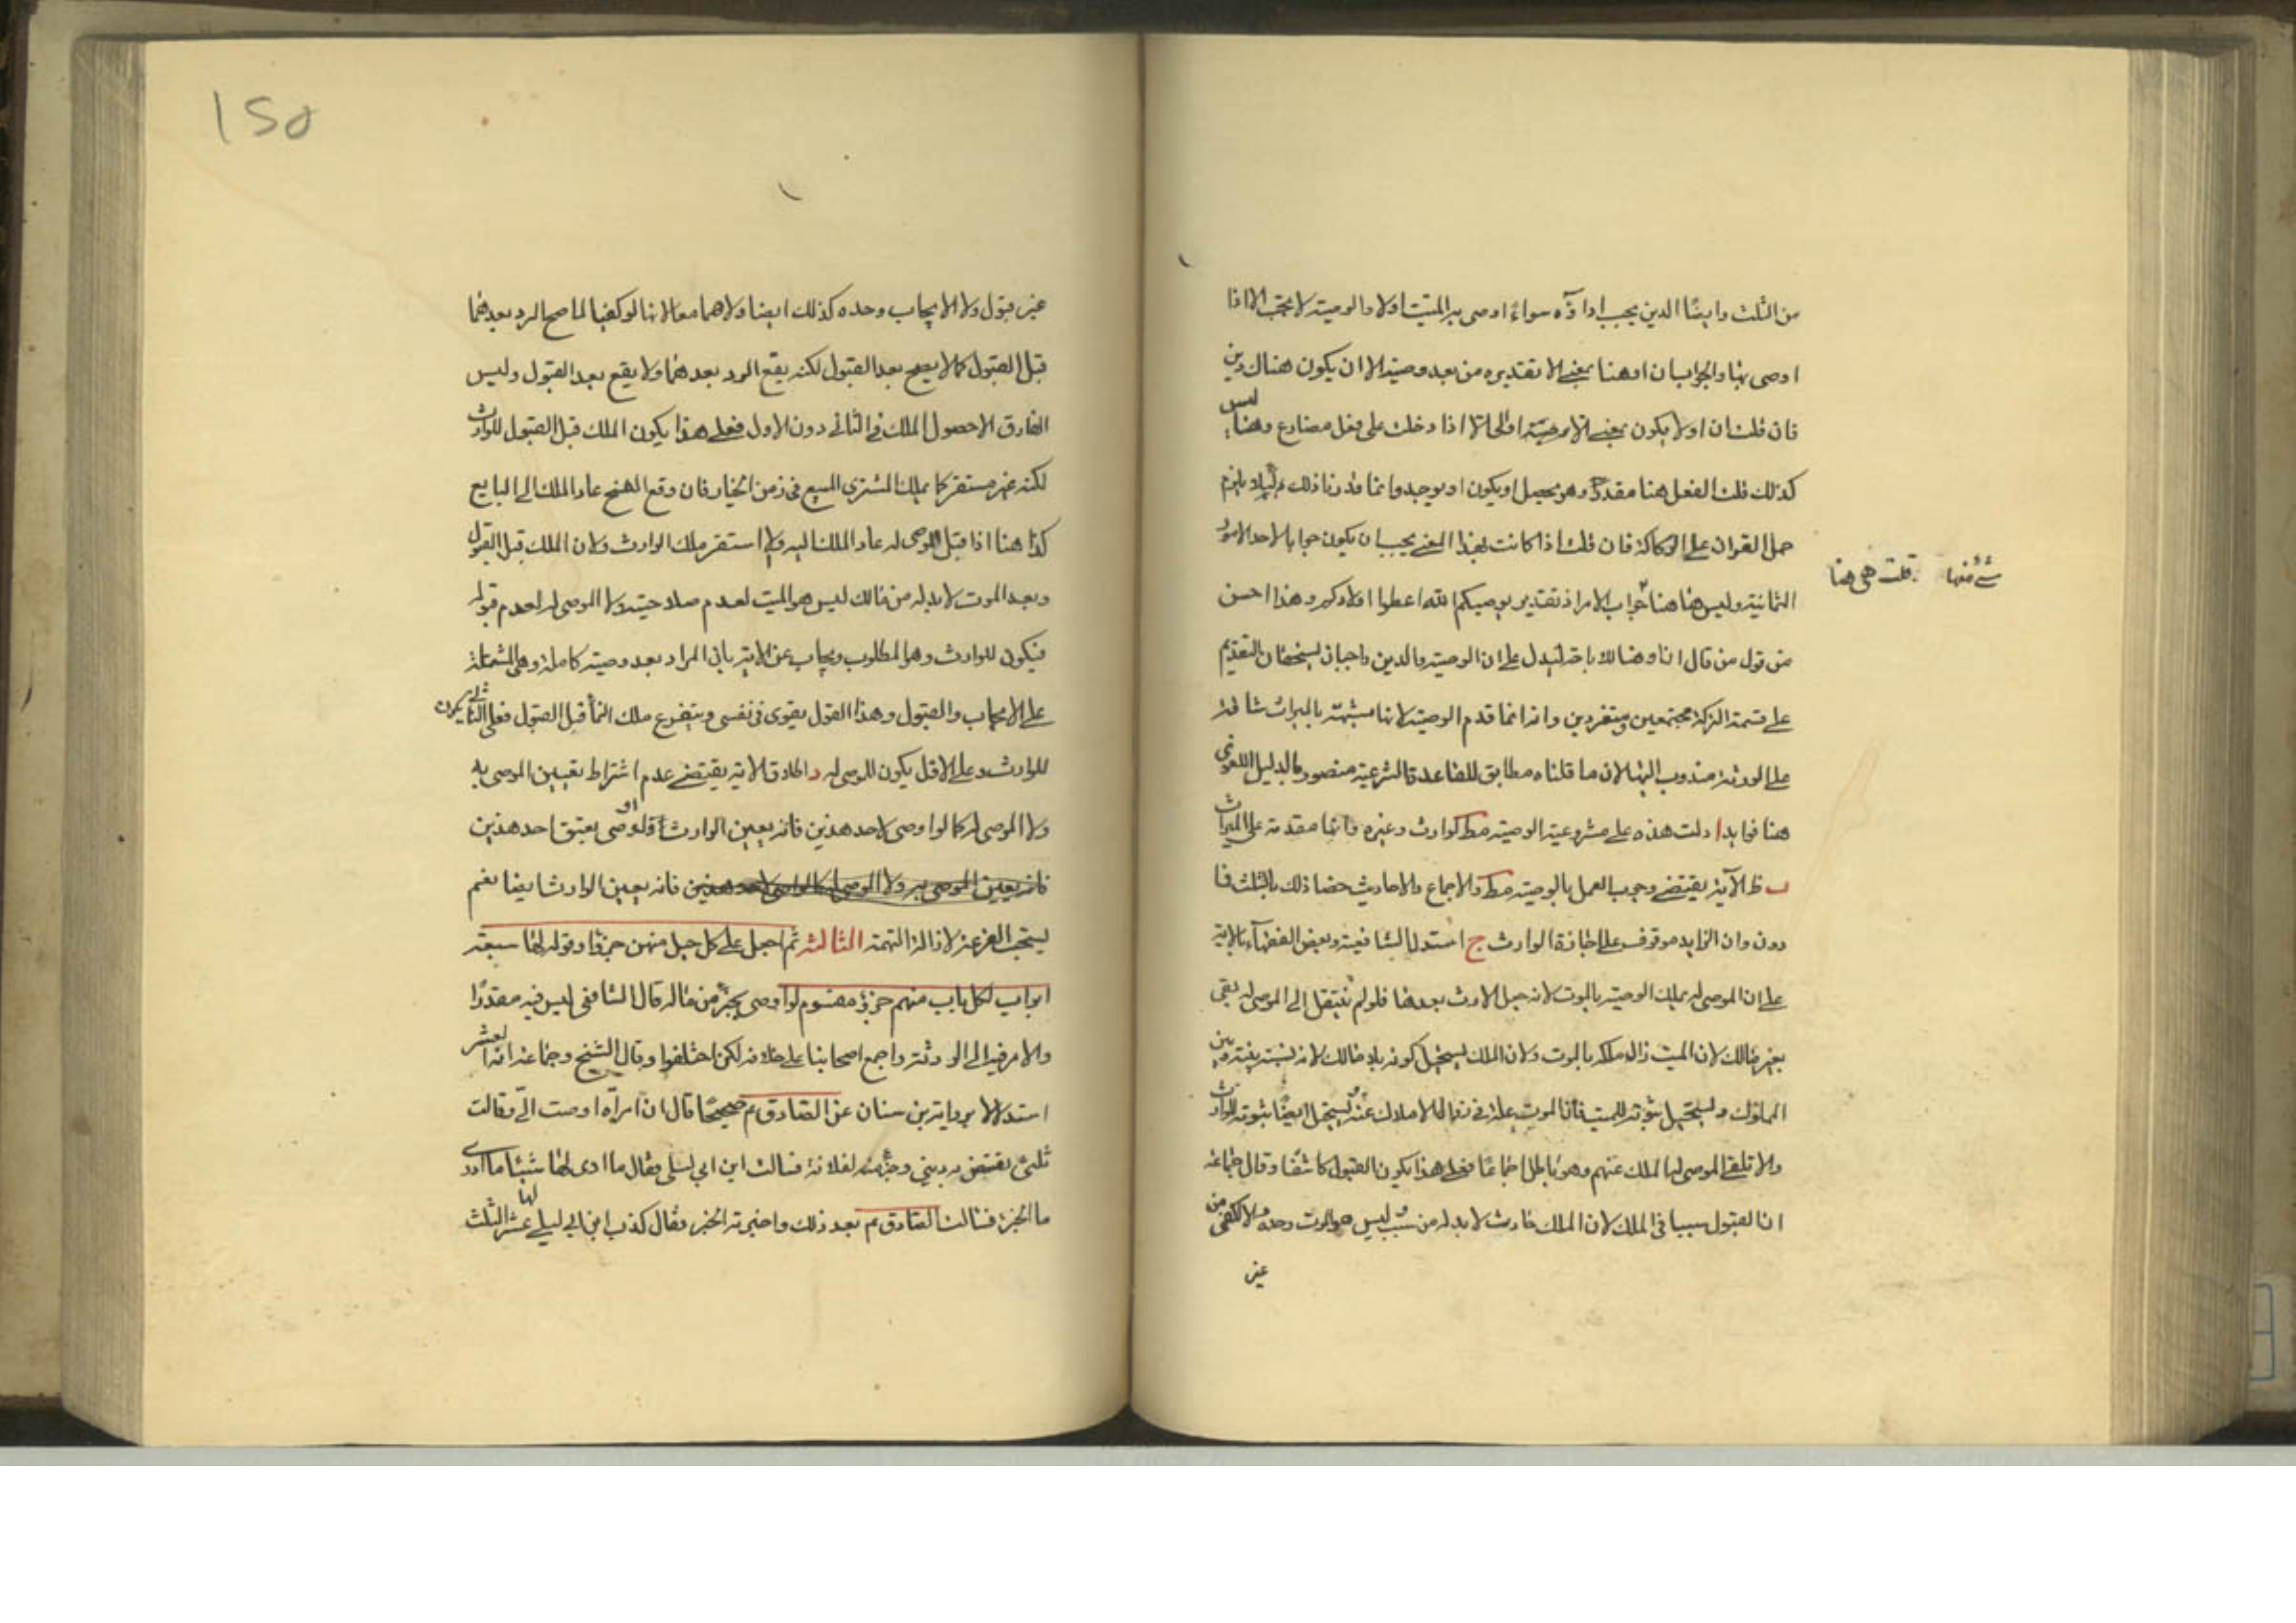 من الثلث وايضًا الدين يجب اداؤه سواء اوصى به الميت اولا والوصية لا تجب الا اذا
اوصى بها والجواب ان او هنا بمعنى الا تقديره من بعد وصية الا ان يكون هناك دين
فان قلت ان او لا يكون بمعنى الا الا اذا دخلت على فعل مضارع وهنا ليس
كذلك قلت الفعل هنا مقدر وهو يحصل او يكون او يوجد وانما قدرنا ذلك لئلا يلزم
حمل القران على الركاكة فان قلت اذا كانت بهذا المعنى يجب ان يكون جوابا لاحد الامور
الثمانية وليس هنا شئ منها قلت هى هنا جواب الامر اذ تقدير يوصيكم الله اعطوا اولادكم وهذا احسن
من قول من قال ان او هنا للاباحة ليدل على ان الوصية والدين واجبان يستحقان التقديم
على قسمة التركة مجتمعين ومنفردين وانه انما قدم الوصية لانها مشبهة بالميراث شاقة
على الورثة مندوب اليها لان ما قلناه مطابق للقاعدة الشرعية منصور بالدليل اللغوى
هنا فوايد ا دلت هذه على مشروعية الوصية مط لوارث وغيره وانها مقدمة على الميراث
ب ظ الآية يقتضى وجوب العمل بالوصية مط والاجماع والاحاديث خصا ذلك بالثلث فا
دون وان الزايد موقوف على اجازة الوارث ج استدل الشافعية وبعض الفقهاء بالاية
على ان الموصى له يملك الوصية بالموت لانه جعل الارث بعدها فلو لم ينتقل الى الموصى له بقى
بغير مالك لان الميت زال ملكه بالموت ولان الملك يستحيل كونه بلا مالك لانه نسبة بينه وبين
المملوك ويستحيل ثبوته للميت فان الموت علة فى زوال الاملاك عنه ويستحيل ايضًا ثبوته للوارث
والا تلقى الموصى له الملك عنهم وهو باطل اجماعًا فعلى هذا يكون القبول كاشفًا وقال جماعة
ان القبول سببا فى الملك لان الملك حادث لا بد له من سبب ليس هو الموت وحده والا لكفى من
غير
غير قبول ولا الايجاب وحده كذلك ايضا ولا هما معا لانها لو كفيا لما صح الرد بعدهما
قبل القبول كما لا يصح بعد القبول لكنه يقع الرد بعدهما ولا يقع بعد القبول وليس
الفارق الا حصول الملك فى الثانى دون الاول فعلى هذا يكون الملك قبل القبول للوارث
لكنه غير مستقر كما يملك المشترى المبيع فى زمن الخيار فان وقع الفسخ عاد الملك الى البايع
كذا هنا اذا قبل الموصى له عاد الملك اليه والا استقر ملك الوارث ولان الملك قبل القبول
وبعد الموت لا بد له من مالك ليس هو الميت لعدم صلاحيته ولا الموصى له لعدم قبوله
فيكون للوارث وهو المطلوب ويجاب عن الاية بان المراد بعد وصية كاملة وهى المشتملة
على الايجاب والقبول وهذا القول يقوى فى نفسى ويتفرع ملك النماء قبل القبول فعلى الثانى يكون
للوارث وعلى الاول يكون للموصى له د اطلاق الاية يقتضى عدم اشتراط تعيين الموصى به
ولا الموصى له كما لو اوصى لاحد هذين فانه يعين الوارث او اوصى بعتق احد هذين
فانه يعين الوارث ايضا نعم
يستحب القرعة لازالة التهمة الثالثه ثم اجعل على كل جبل منهن جزؤا وقوله لها سبعة
ابواب لكل باب منهم جزؤ مقسوم لو اوصى بجزء من ماله قال الشافعى ليس فيه مقدرًا
والامر فيه الى الورثة واجمع اصحابنا على خلافه لكن اختلفوا وقال الشيخ وجماعة انه العشر
استدلالا برواية بن سنان عن الصادق م صحيحًا قال ان امرأة اوصت الى وقالت
ثلثى يقتضى به دينى وجزء منه لفلانة فسالت ابن ابى ليلى فقال ما ارى لها شيئا ما ادرى
ما الجزء فسالت الصادق م بعد ذلك واخبرته الخبر فقال كذب ابن ابى ليلى لها عشر الثلث